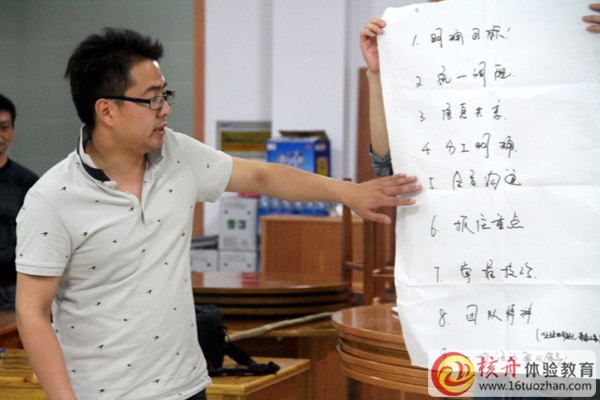 1. 明确目标
2. 统一问题
3. 信息共享
4. 分工明确
5. 全员沟通
6. 抓住重点
7. 掌握技巧
8. 团队精神
核舟体验教育
www.16tuozhan.com